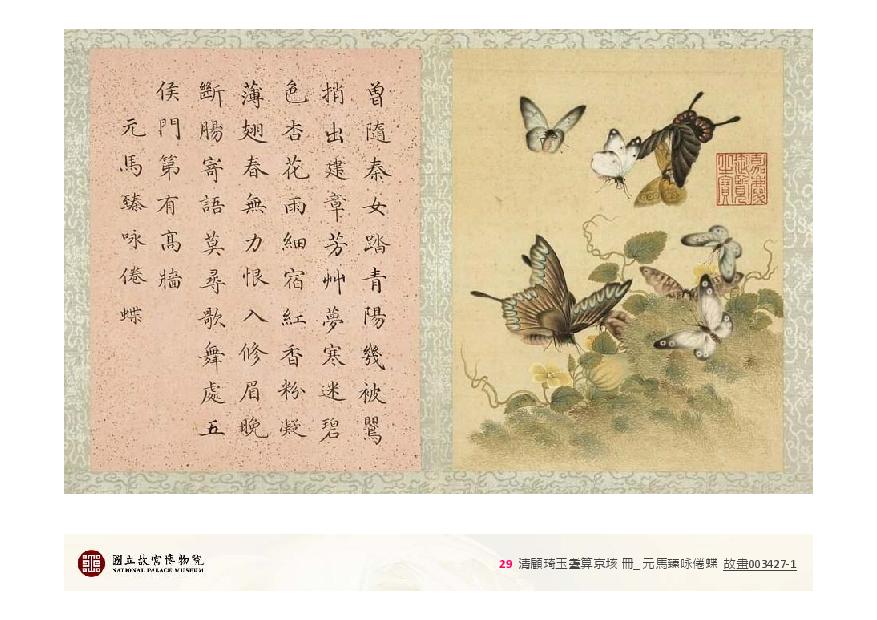 曾隨秦女踏青陽幾被鸎
捎出建章芳艸夢寒迷碧
色杏花雨細宿紅香粉凝
薄翅春無力恨入修眉晚
斷腸寄語莫尋歌舞處五
侯門第有高牆
元馬臻咏倦蝶
嘉慶
御覽
之寶
國立故宮博物院
NATIONAL PALACE MUSEUM
29 清顧琦玉盞算京垓 冊_ 元馬臻咏倦蝶 故畫003427-1